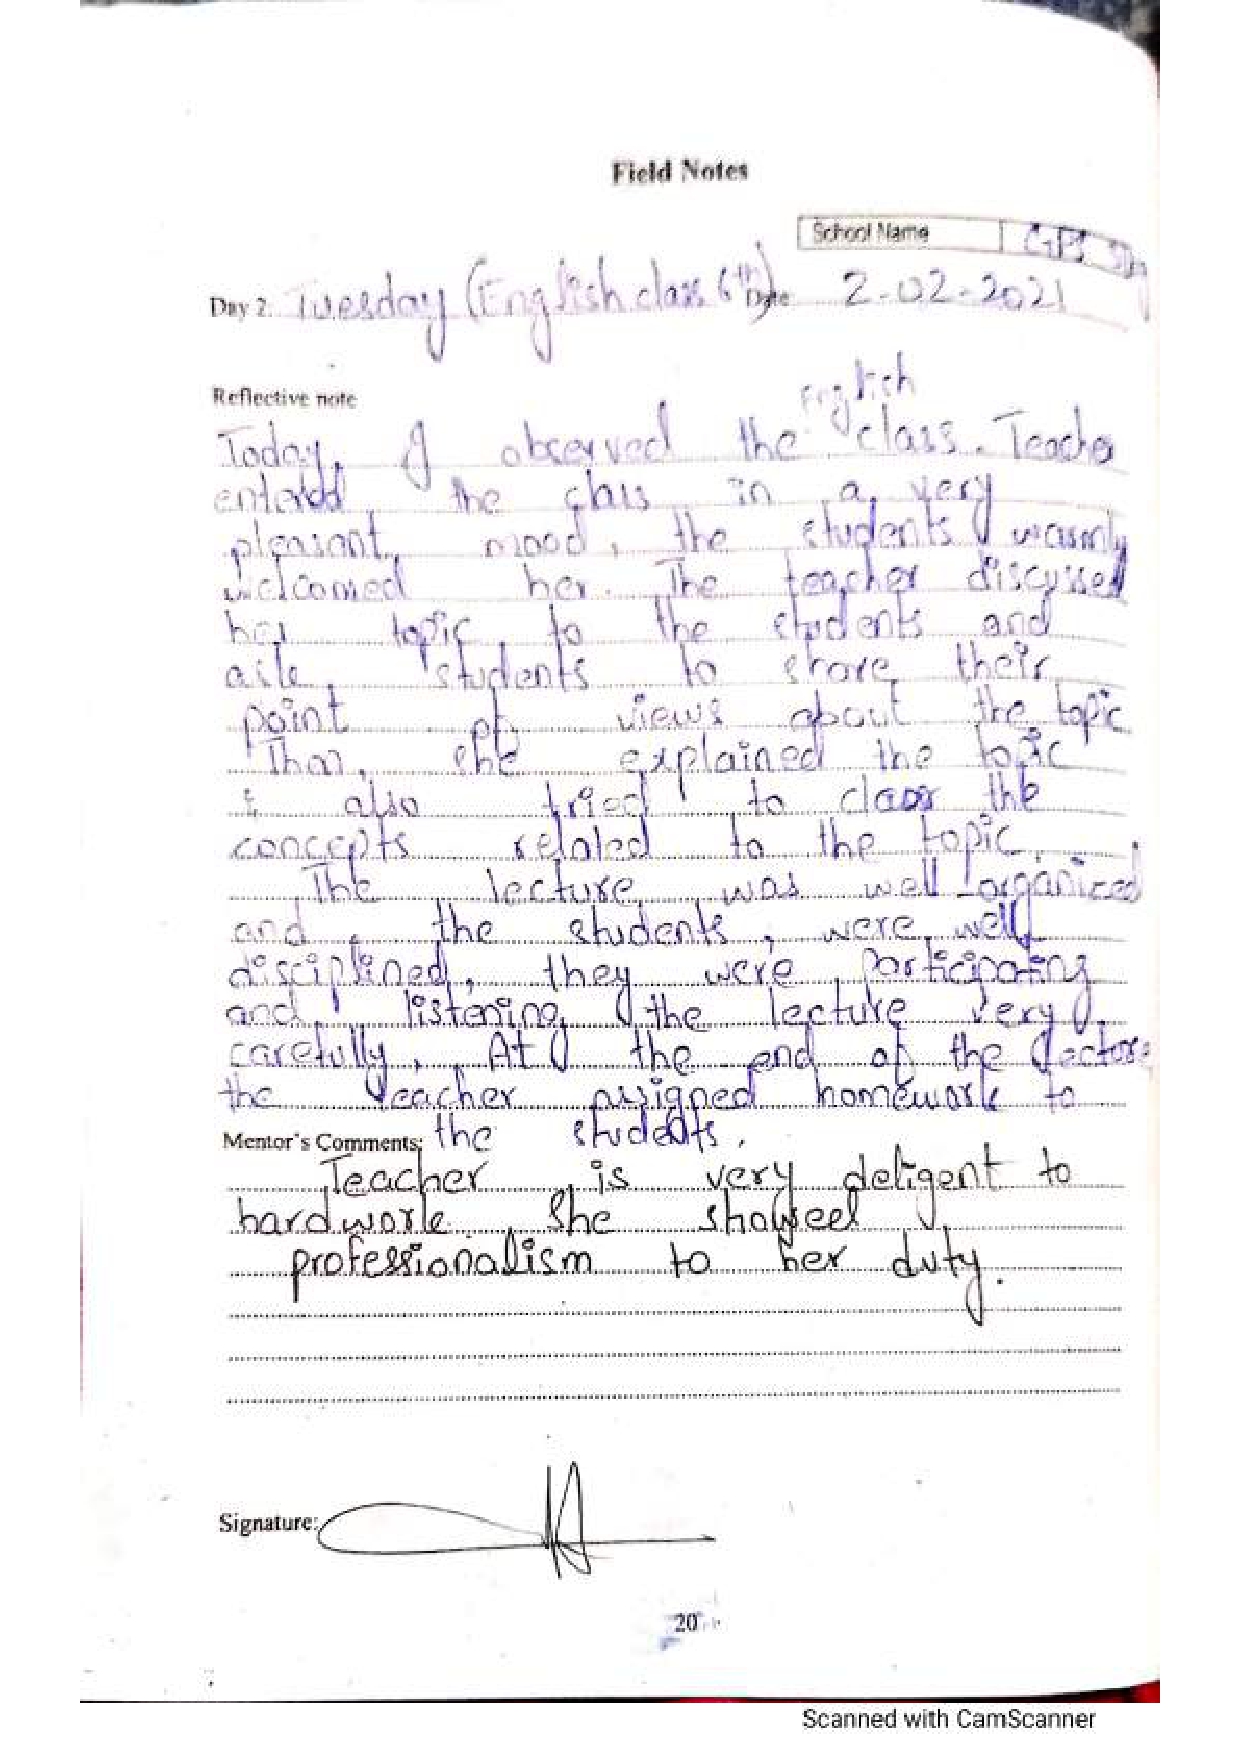 Field Notes
School Name GPS
Day 2: Tuesday (English class 6th) Date 2-02-2021
Reflective note
English
Today, I observed the class. Teacher
entered the class in a very
pleasant mood, the students warmly
welcomed her. The teacher discussed
her topic to the students and
aske students to share their
point of views about the topic
Than, she explained the topic
& also tried to clear the
concepts related to the topic.
The lecture was well-organized
and the students, were well
disciplined, they were participating
and listening the lecture very
carefully. At the end of the lecture
the teacher assigned homework to
the students.
Mentor's Comments:
Teacher is very deligent to
hardwork. She showeel
professionalism to her duty.
Signature:
20
Scanned with CamScanner